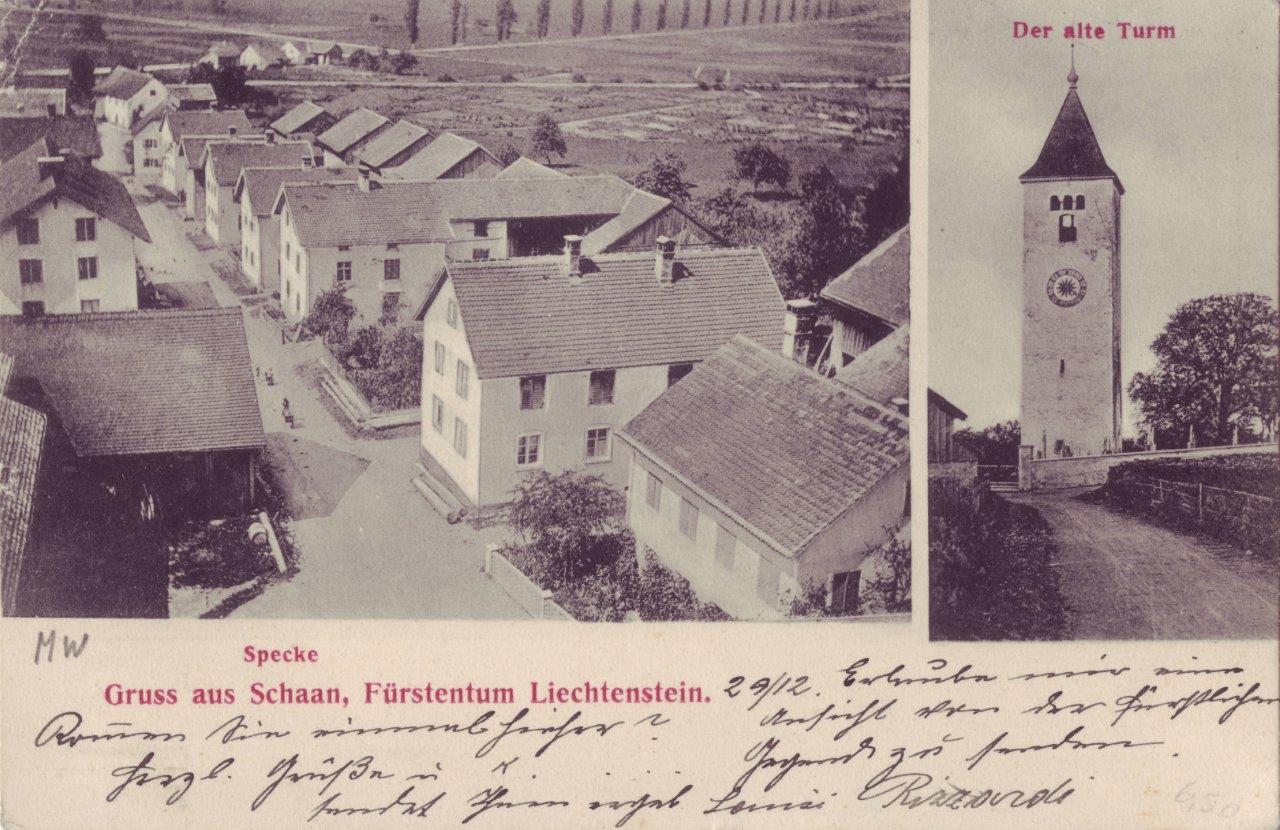 Der alte Turm
MW
Specke
Gruss aus Schaan, Fürstentum Liechtenstein.
29/12. Erlaube mir eine
Ansicht von der fürstlichen
Gegend zu senden.
Kom̅en Sie einmal hieher?
Herzl. Grüße u K.
sendet Ihnen ergeb Rizzardi
6,50